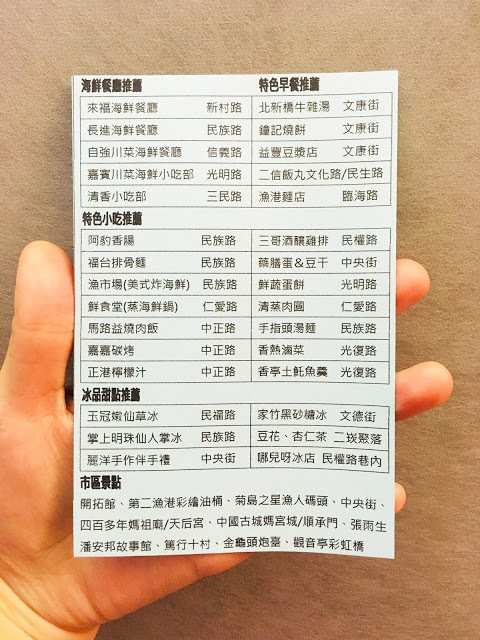 海鮮餐廳推薦 特色早餐推薦
來福海鮮餐廳 新村路 北新橋牛雜湯 文康街
長進海鮮餐廳 民族路 鐘記燒餅 文康街
自強川菜海鮮餐廳 信義路 益豐豆漿店 文康街
嘉賓川菜海鮮小吃部 光明路 二信飯丸文化路/民生路
清香小吃部 三民路 漁港麵店 臨海路
特色小吃推薦
阿豹香腸 民族路 三哥酒釀雞排 民權路
福台排骨麵 民族路 藥膳蛋&豆干 中央街
漁市場(美式炸海鮮) 民族路 鮮蔬蛋餅 光明路
鮮食堂(蒸海鮮鍋) 仁愛路 清蒸肉圓 仁愛路
馬路益燒肉飯 中正路 手指頭湯麵 民族路
嘉嘉碳烤 中正路 香熱滷菜 光復路
正港檸檬汁 中正路 香亭土魠魚羹 光復路
冰品甜點推薦
玉冠嫩仙草冰 民福路 家竹黑砂糖冰 文德街
掌上明珠仙人掌冰 民族路 豆花、杏仁茶 二崁聚落
麗洋手作伴手禮 中央街 哪兒呀冰店 民權路巷內
市區景點
開拓館、第二漁港彩繪油桶、菊島之星漁人碼頭、中央街、
四百多年媽祖廟/天后宮、中國古城媽宮城/順承門、張雨生
潘安邦故事館、篤行十村、金龜頭炮臺、觀音亭彩虹橋